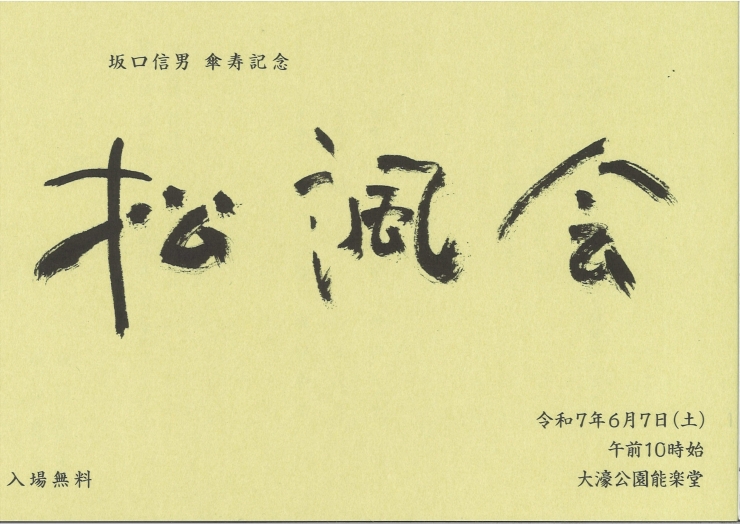 坂口信男 傘寿記念
松諷会
令和7年6月7日(土)
午前10時始
大濠公園能楽堂
入場無料